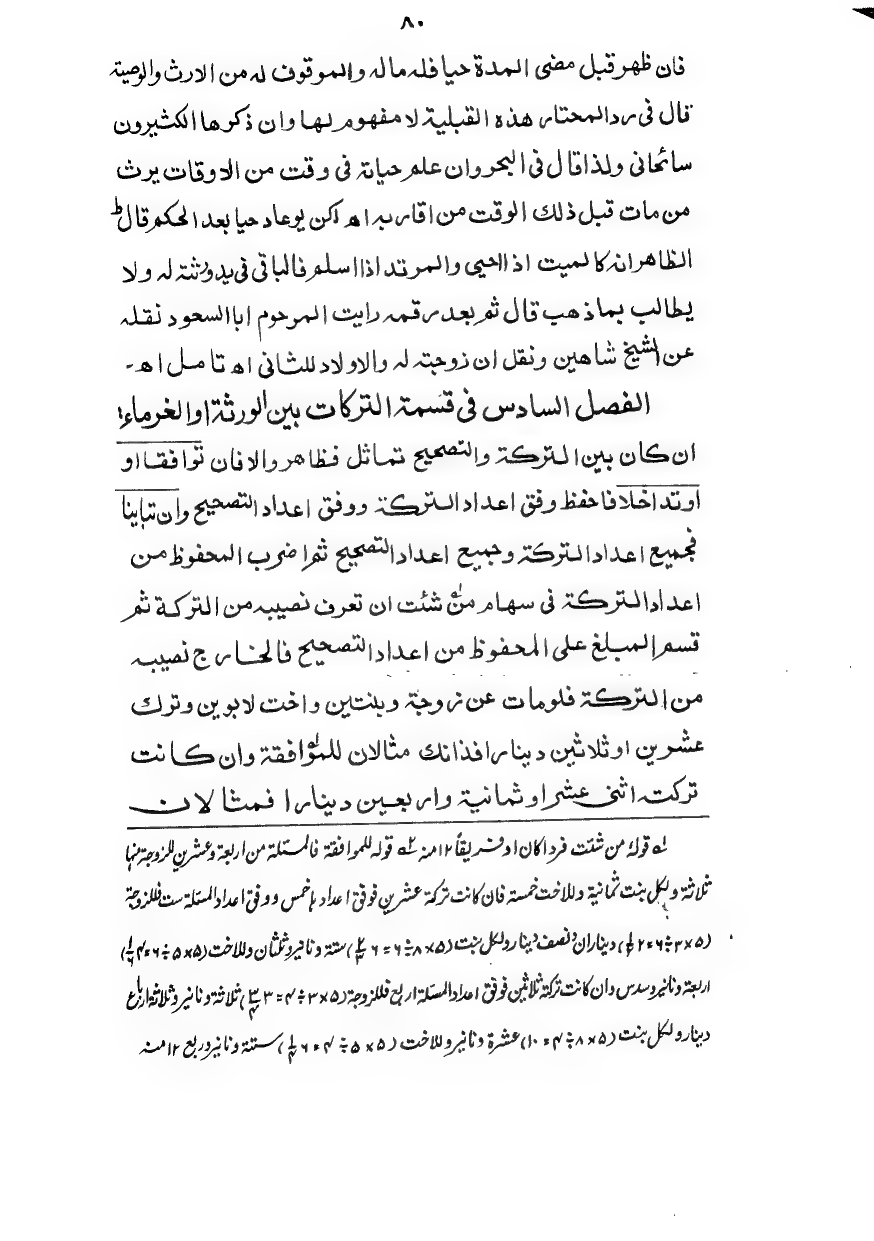 ٨٠
فان ظهر قبل مضى المدة حيا فله ماله والموقوف له من الارث والوصية
قال فى رد المحتار هذه القبلية لا مفهوم لها وان ذكرها الكثيرون
سائحانى ولذا قال فى البحر وان علم حياته فى وقت من الاوقات يرث
من مات قبل ذلك الوقت من اقاربه اھ لكن لو عاد حيا بعد الحكم قال ط
الظاهر انه كالميت اذا احيى والمرتد اذا اسلم فالباقى فى يد ورثته له ولا
يطالب بما ذهب قال ثم بعد رقمه رايت المرحوم ابا السعود نقله
عن الشيخ شاهين ونقل ان زوجته له والاولاد للثانى اھ تامل اھ-
الفصل السادس فى قسمة التركات بين الورثة او الغرماء؛
ان كان بين التركة والتصحيح تماثل فظاهر والا فان توافقا او
او تداخلا فاحفظ وفق اعداد التركة ووفق اعداد التصحيح وان تباينا
فجميع اعداد التركة وجميع اعداد التصحيح ثم اضرب المحفوظ من
اعداد التركة فى سهام من شئت ان تعرف نصيبه من التركة ثم
قسم المبلغ على المحفوظ من اعداد التصحيح فالخارج نصيبه
من التركة فلو مات عن زوجة وبنتين واخت لابوين وترك
عشرين او ثلاثين دينارا فذانك مثالان للموافقة وان كانت
تركته اثنى عشر او ثمانية واربعين دينارا فمثالان
لہ قولہ من شئت فردا كان او فريقاً ١٢ منہ ٢ہ قولہ للموافقة فالمسئلة من اربعة وعشرين للزوجة منها
ثلاثة ولكل بنت ثمانية وللاخت خمسة فان كانت تركة عشرين فوفق اعدادها خمس ووفق اعداد المسئلة ست فللزوجة
(٥×٣÷٦=٢½) ديناران ونصف دينار ولكل بنت (٥×٨÷٦=٦⅔) ستة دنانير وثلثان وللاخت (٥×٥÷٦=٤⅙)
اربعة دنانير وسدس وان كانت تركة ثلاثين فوفق اعداد المسئلة اربع فللزوجة (٥×٣÷٤=٣¾) ثلاثة دنانير وثلاثة ارباع
دينار ولكل بنت (٥×٨÷٤=١٠) عشرة دنانير وللاخت (٥×٥÷٤=٦¼) ستة دنانير وربع ١٢ منہ